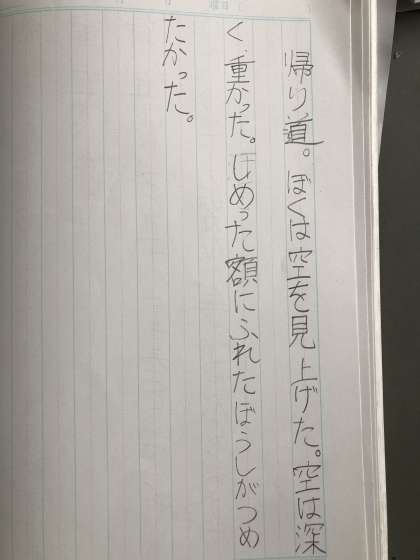 帰り道。ぼくは空を見上げた。空は深
く、重かった。じめった額にふれたぼうしがつめ
たかった。